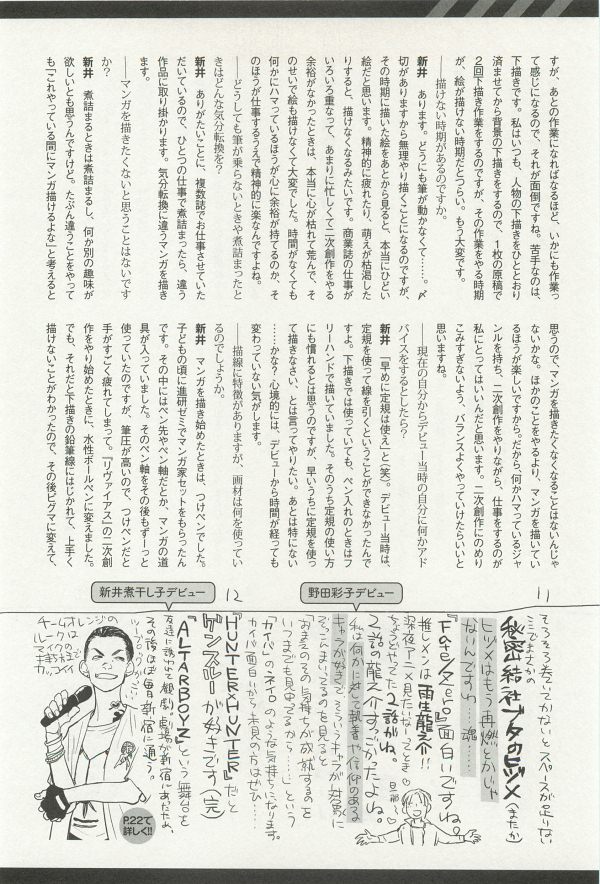 すが、あとの作業になればなるほど、いかにも作業っ
て感じになるので、それが面倒ですね。苦手なのは、
下描きです。私はいつも、人物の下描きをひととおり
済ませてから背景の下描きをするので、1枚の原稿で
2回下描き作業をするのですが、その作業をやる時期
が、絵が描けない時期だとつらい。もう大変です。
――描けない時期があるのですか。
新井　あります。どうにも筆が動かなくて……。〆
切がありますから無理やり描くことになるのですが、
その時期に描いた絵をあとから見ると、本当にひどい
絵だと思います。精神的に疲れたり、萌えが枯渇した
りすると、描けなくなるみたいです。商業誌の仕事が
いろいろ重なって、あまりに忙しくて二次創作をやる
余裕がなかったときは、本当に心が枯れて荒んで、そ
のせいで絵も描けなくて大変でした。時間がなくても
何かにハマっているほうが心に余裕が持てるのか、そ
のほうが仕事するうえで精神的に楽なんですよね。
――どうしても筆が乗らないときや煮詰まったと
きはどんな気分転換を？
新井　ありがたいことに、複数誌でお仕事させていた
だいているので、ひとつの仕事で煮詰まったら、違う
作品に取り掛かります。気分転換に違うマンガを描き
ます。
――マンガを描きたくないと思うことはないです
か？
新井　煮詰まるときは煮詰まるし、何か別の趣味が
欲しいとも思うんですけど。たぶん違うことをやって
も「これやっている間にマンガ描けるよな」と考えると
思うので、マンガを描きたくなくなることはないんじゃ
ないかな。ほかのことをやるより、マンガを描いてい
るほうが楽しいですから。だから、何かハマっているジャ
ンルを持ち、二次創作をやりながら、仕事をするのが
私にとってはいいんだと思います。二次創作にのめり
こみすぎないよう、バランスよくやっていけたらいいと
思いますね。
――現在の自分からデビュー当時の自分に何かアド
バイスをするとしたら？
新井　「早めに定規は使え」と（笑）。デビュー当時は、
定規を使って線を引くということができなかったんで
すよ。下描きでは使っていても、ペン入れのときはフ
リーハンドで描いていました。そのうち定規の使い方
にも慣れるとは思うのですが、早いうちに定規を使っ
て描きなさい、とは言ってやりたい。あとは特にない
……かな？心境的には、デビューから時間が経っても
変わっていない気がします。
――描線に特徴がありますが、画材は何を使ってい
るのでしょうか。
新井　マンガを描き始めたときは、つけペンでした。
子どもの頃に進研ゼミでマンガ家セットをもらったん
です。その中にはペン先やペン軸だとか、マンガの道
具が入っていました。そのペン軸をその後もずーっと
使っていたのですが、筆圧が高いので、つけペンだと
手がすごく疲れてしまって。『リヴァイアス』の二次創
作をやり始めたときに、水性ボールペンに変えました。
でも、それだと下描きの鉛筆線にはじかれて、上手く
描けないことがわかったので、その後ピグマに変えて、
11
そろそろ巻いてかないとスペースが足りない
ここでまさかの
秘密結社ブタのヒヅメ（またか）
ヒヅメはもう再燃とかじゃ
なりんですわ……魂……
野田彩子デビュー
『Fate/Zero』面白いですね。
推しメンは雨生龍之介!!
深夜アニメ見たいな〜ってときに
ちょうどやってた2話がね。
2話の龍之介すごかったよね。
私は何かに対して執着や信仰のある
キャラが好きで、そういうキャラが対象に
ぞっこんまいってるのを見ると
「おまえのその気持ちが成就するのを
いつまでも見守ってるから……」という
カイバのネイロのような気持ちになります。
カイバ面白いから未見の方はぜひ……
旦那〜
12
新井煮干し子デビュー
『HUNTER×HUNTER』だと
ゲンスルーが好きです（完）
『ALTARBOYZ』という舞台を
友達に誘われて観劇。劇場が新宿にあったため、
その後ほぼ毎日新宿に通う。
チームオレンジの
ルークの
マキタさん
カッコイイ
P.22で
詳しく!!